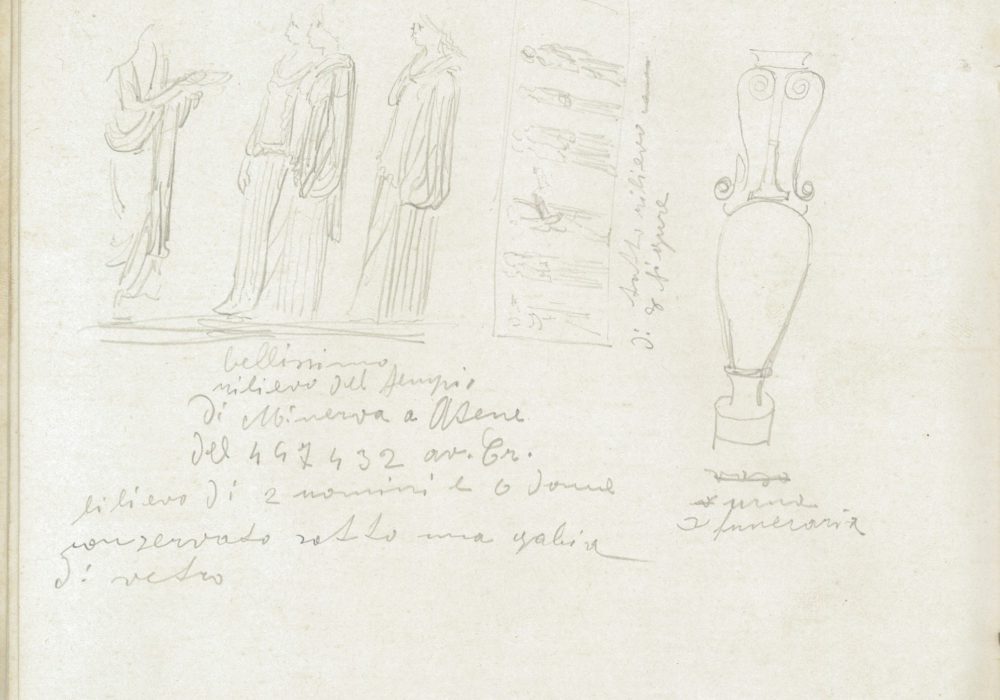 bellissimo
rilievo del tempio
di Minerva a Atene
del 447 432 av. Cr.
rilievo di 2 uomini e 6 donne
conservato sotto una gabia
di vetro
di 8 figure
vaso
urna
funeraria